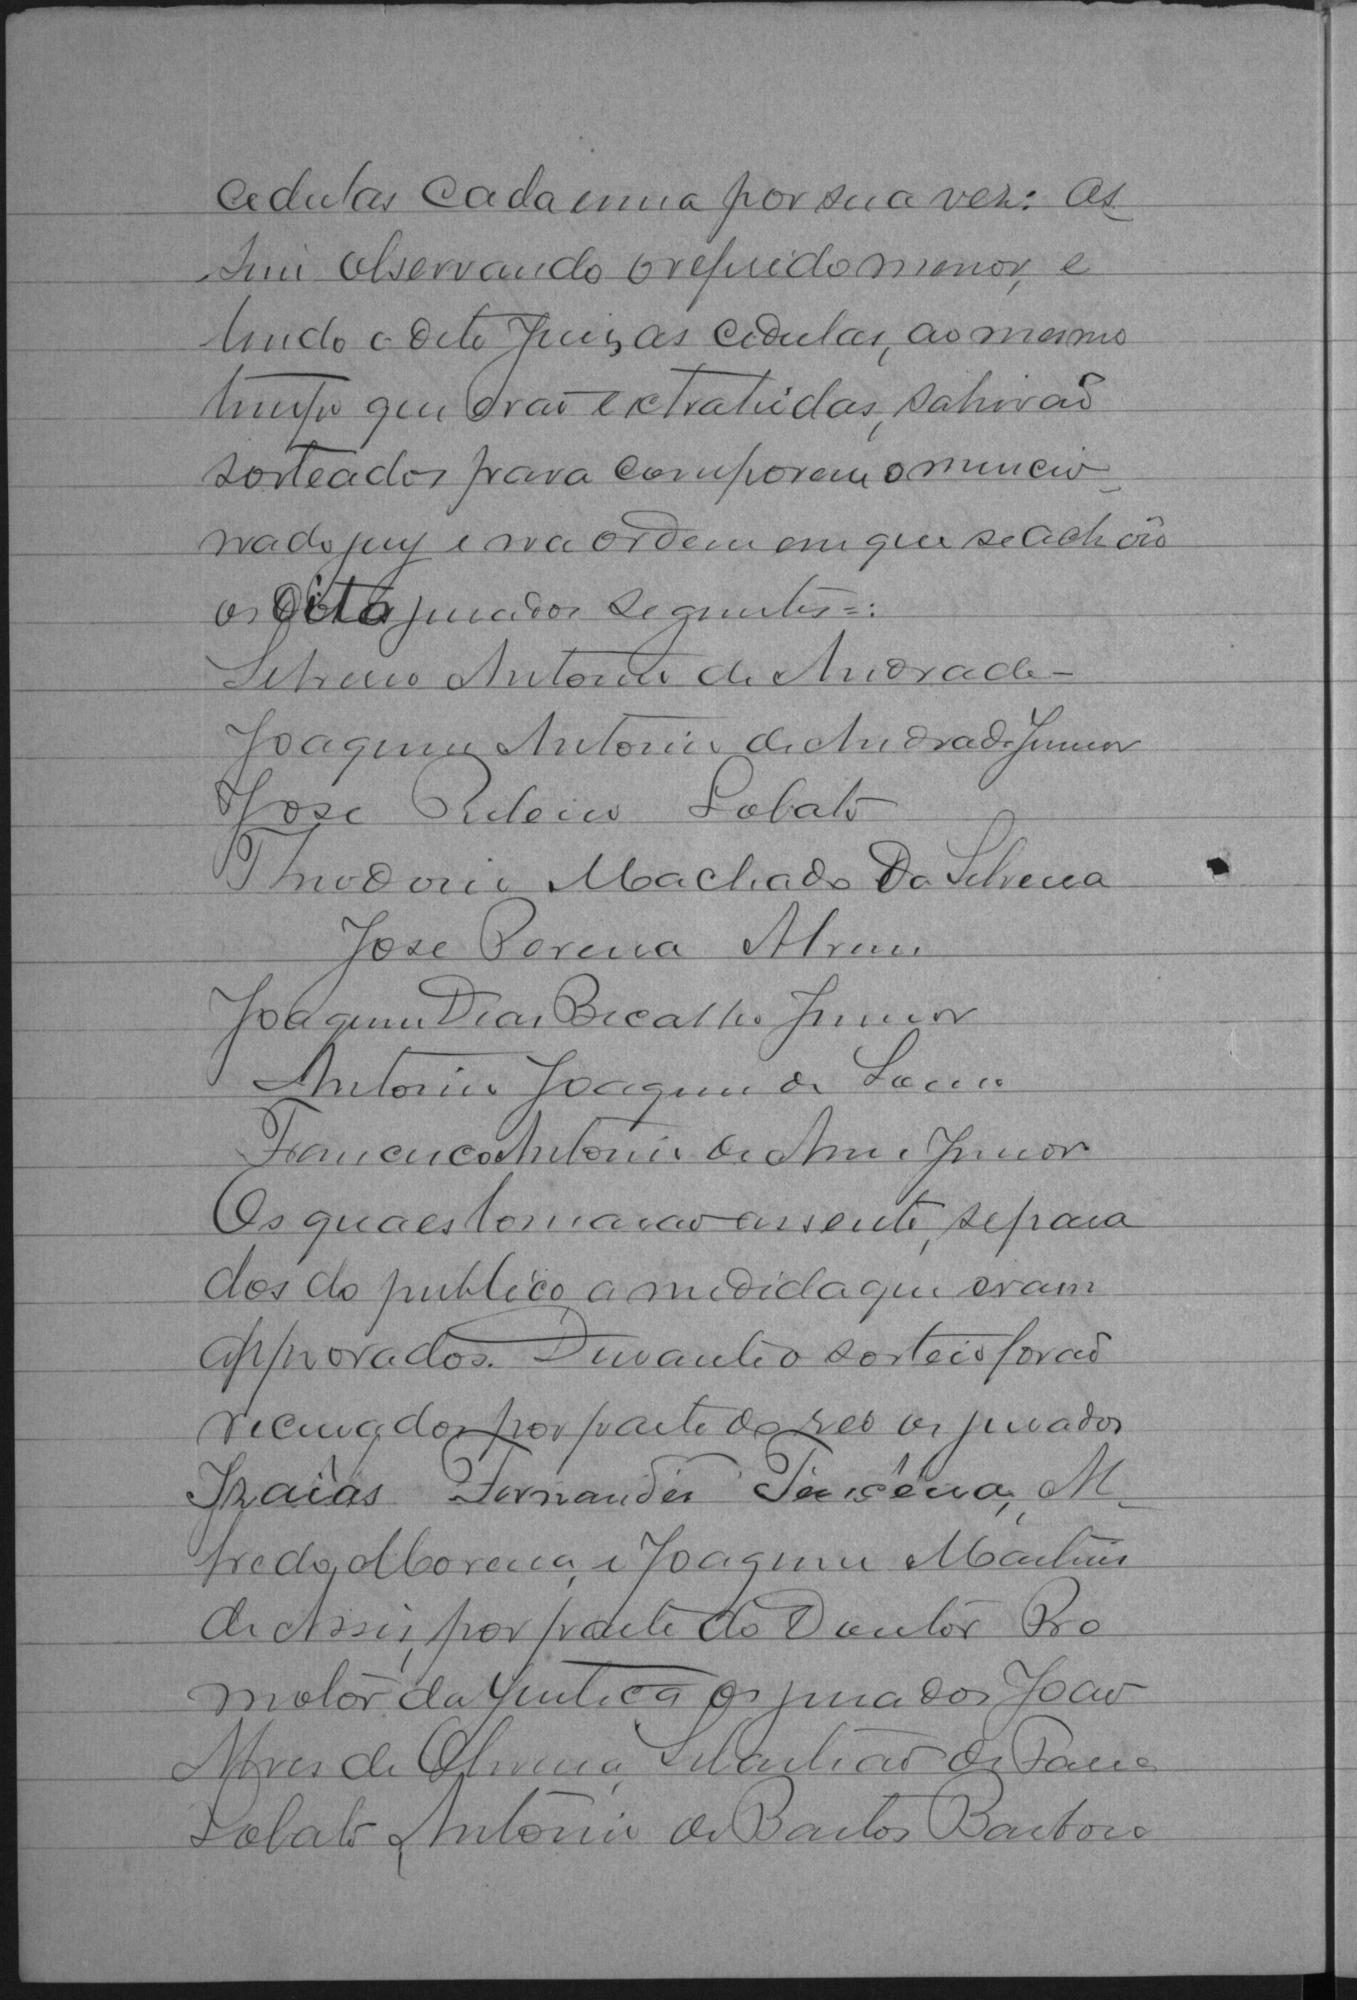 cedulas cada uma por sua vez: As
sim observando o refirido menor, e
lendo o dito Juiz, as cedulas, ao mesmo
tempo que erão extrahidas, sahirão
sorteados para comporem o mencio
nado jury e na ordem em que se achão
os oito jurados seguintes =:
Silverio Antonio de Andrade -
Joaquim Antonio de Andrade Junior
Jose Ribeiro Lobato
Theodorio Machado da Silveira
Jose Pereira Alvim
Joaquim Dias Bicalho Junior
Antonio Joaquim de
Francisco Antonio de Junior
Os quaes tomarão assento, separa
dos do publico, a medida que eram
approvados. Durante o sorteio forão
recusados por parte do reo os jurados
Izaias Fernandes Teixeira, Al_
fredo Moreira, e Joaquim Martins
de Assis, por parte do Doutor Pro
motor da Justiça os jurados João
Alves de Oliveira, Sebastião de Faria
Lobato, Antonio de Bastos Barboza